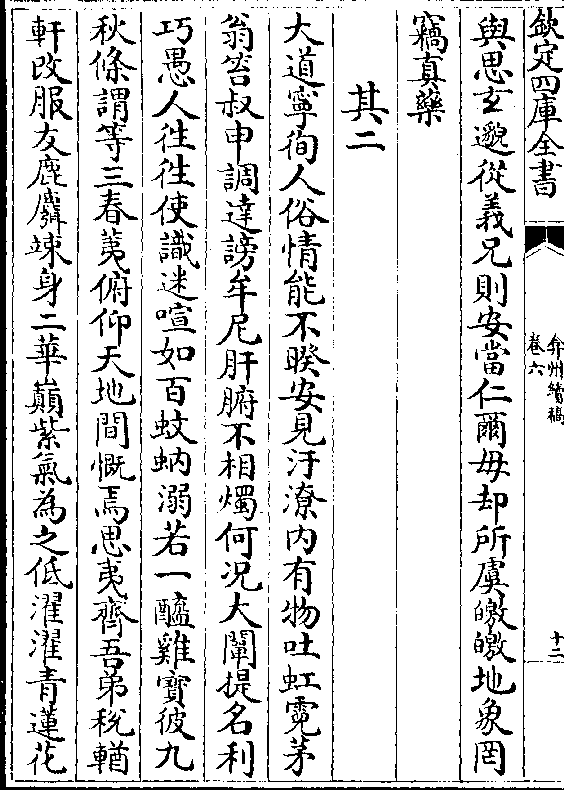 欽定四庫全書
弇州續稿
卷六
十二
與思玄邈從義兄則安當仁爾毋却所虞皦皦地象罔
竊真藥
其二
大道寧徇人俗情能不暌安見汙潦内有物吐虹霓茅
翁笞叔申調達謗牟尼肝腑不相燭何況大闡提名利
巧愚人徃徃使識迷喧如百蚊蚋溺若一醯雞寳彼九
秋條謂等三春荑俯仰天地間慨焉思夷齊吾弟稅輶
軒改服友鹿麛竦身二華巔紫氣為之低濯濯青蓮花